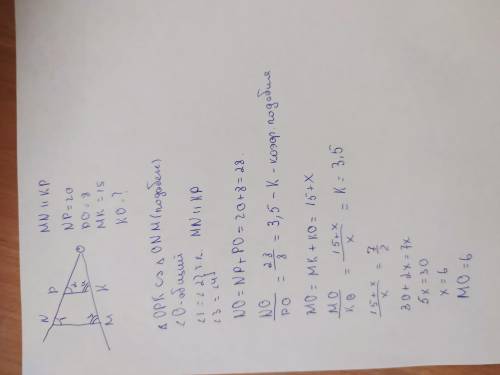 MN || KP
NP = 20
PO = 8
MK = 15
KO = ?
O
N
P
K
M
△OPK ∽ △ONM (подобен)
∠O - общий
∠1 = ∠2 } т.к. MN || KP
∠3 = ∠4
NO = NP + PO = 20 + 8 = 28.
NO/PO = 28/8 = 3,5 - K - коэф. подобия
MO = MK + KO = 15 + x
MO/KO = 15+x/x = K = 3,5
15+x/x = 7/2
30 + 2x = 7x
5x = 30
x = 6
MO = 6